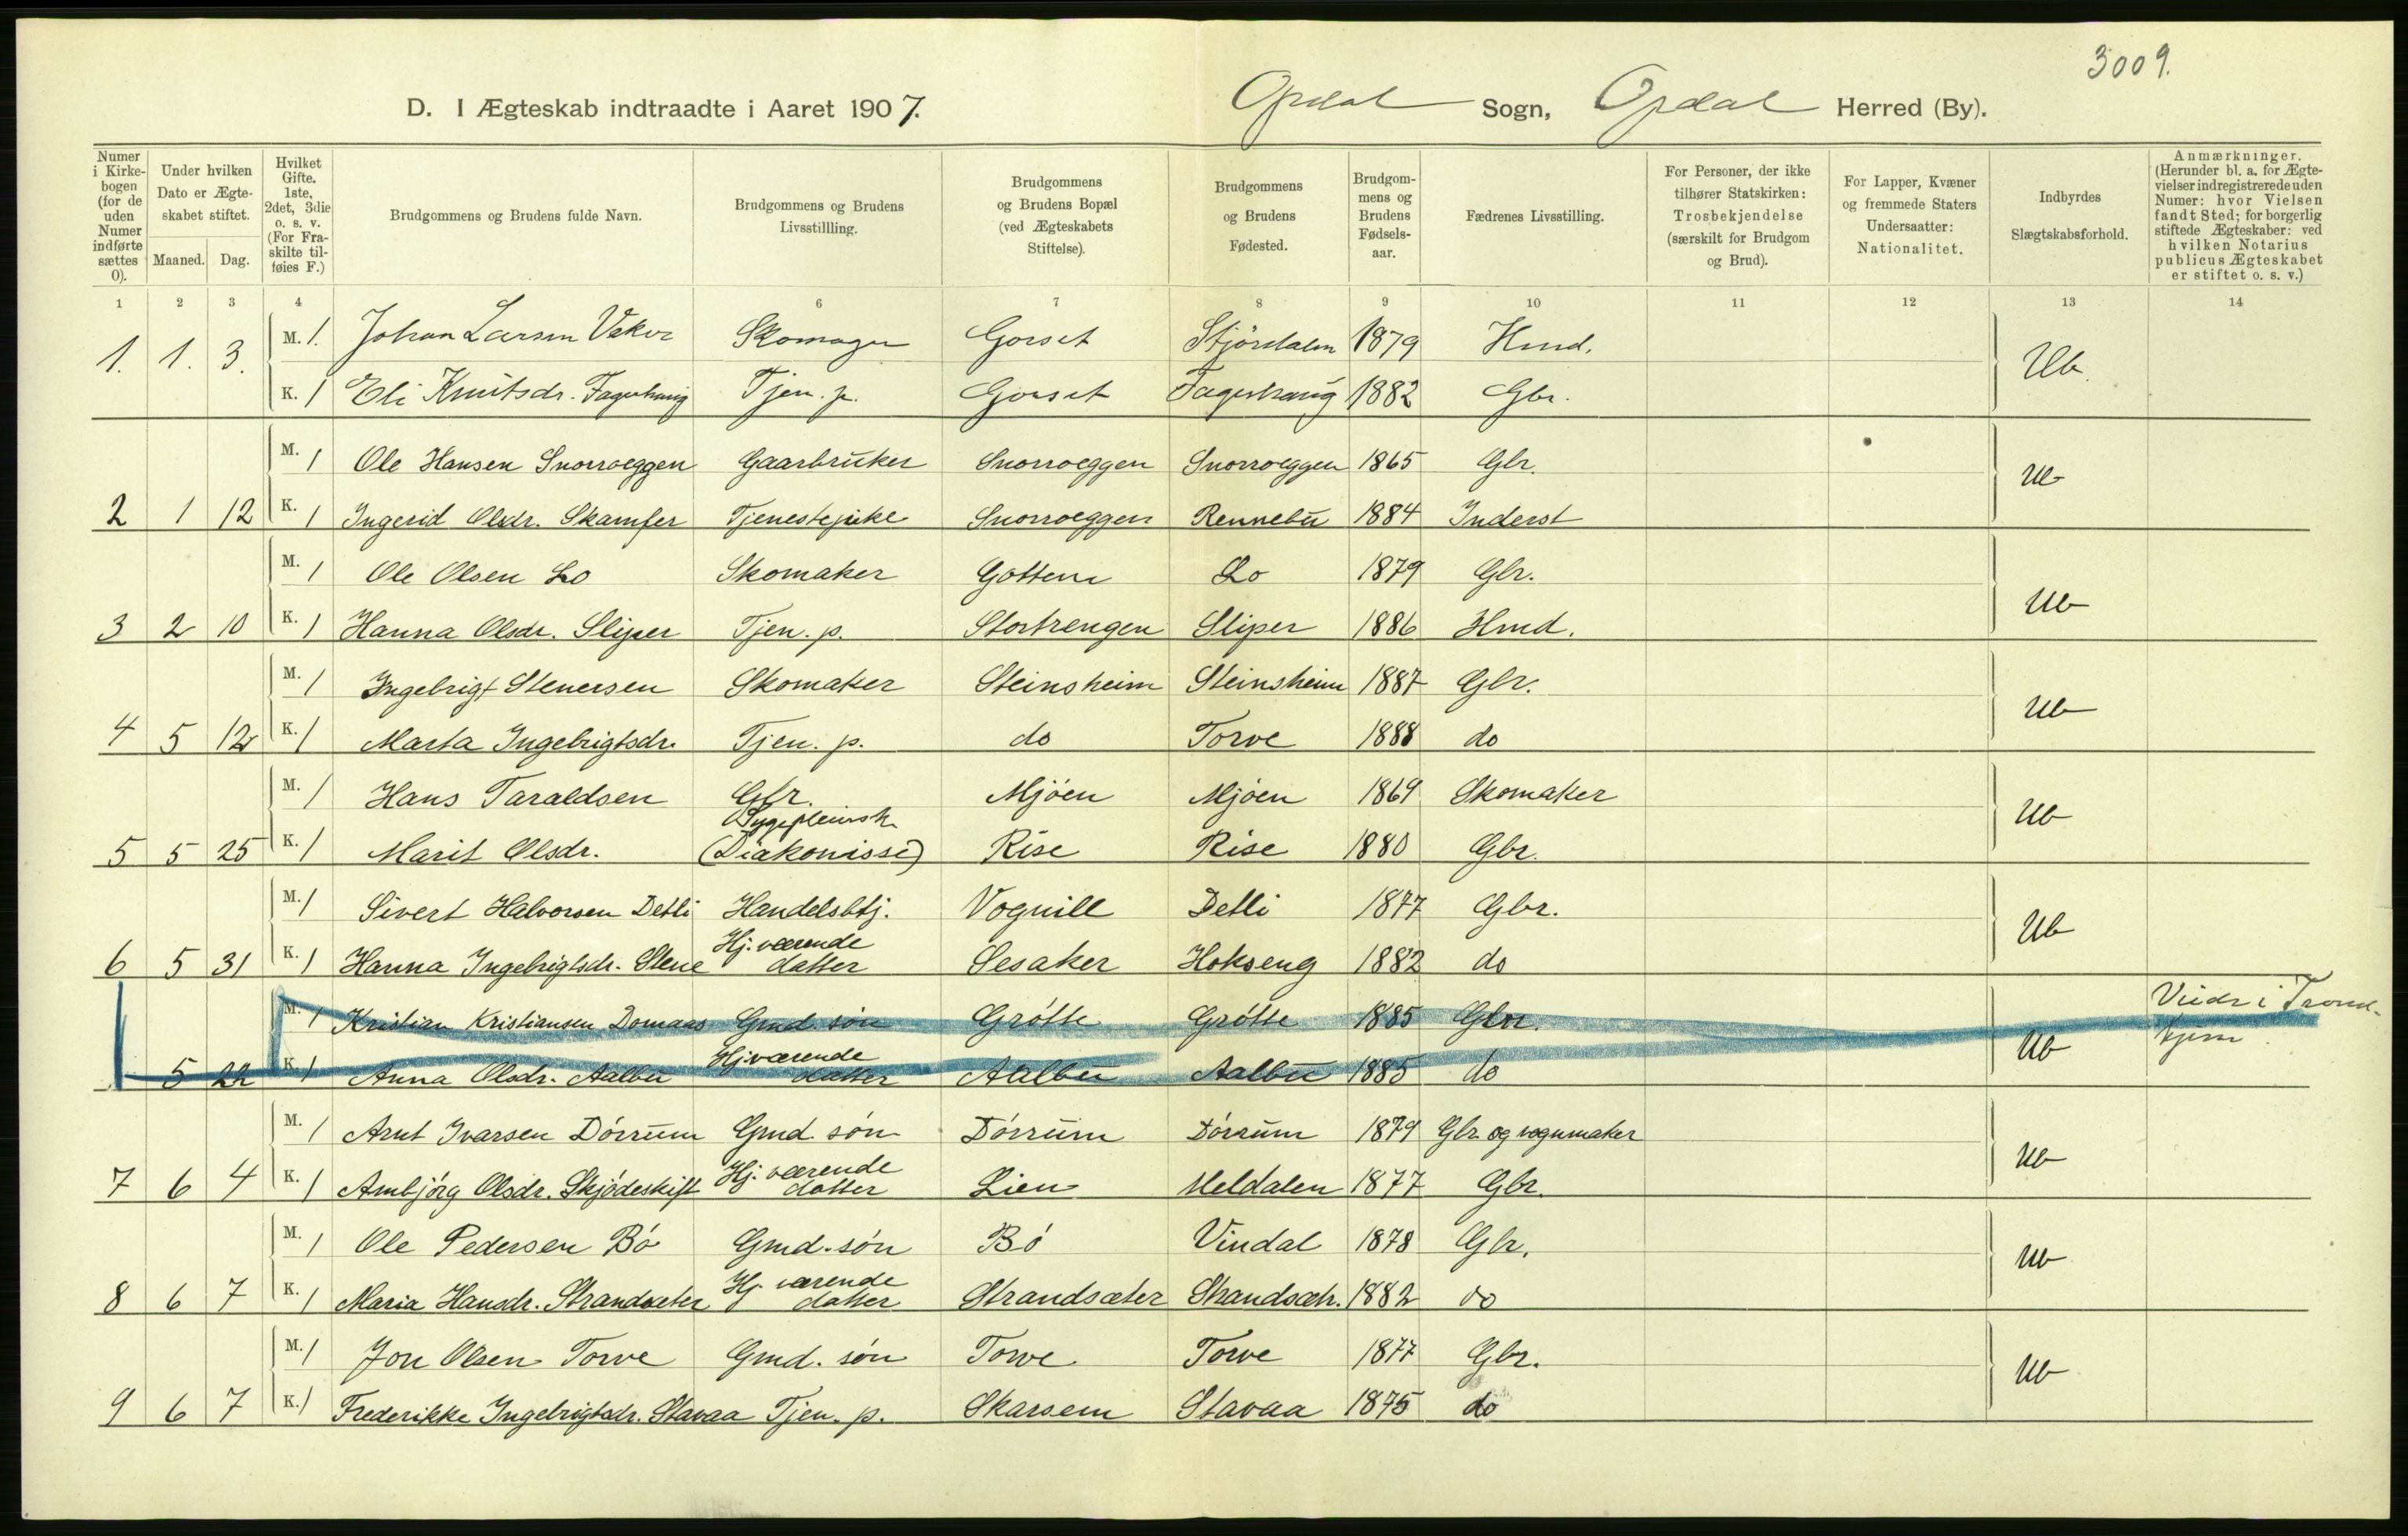 3009.
D. I Ægteskab indtraadte i Aaret 1907. Opdal Sogn, Opdal Herred (By).
Numer i Kirkebogen (for de uden Numer indførte sættes 0).
Under hvilken Dato er Ægteskabet stiftet.
Maaned. Dag.
Hvilket Gifte. 1ste, 2det, 3die o. s. v. (For Fraskilte tilføies F.)
Brudgommens og Brudens fulde Navn.
Brudgommens og Brudens Livsstillling.
Brudgommens og Brudens Bopæl (ved Ægteskabets Stiftelse).
Brudgommens og Brudens Fødested.
Brudgommens og Brudens Fødselsaar.
Fædrenes Livsstilling.
For Personer, der ikke tilhører Statskirken: Trosbekjendelse (særskilt for Brudgom og Brud).
For Lapper, Kvæner og fremmede Staters Undersaatter: Nationalitet.
Indbyrdes Slægtskabsforhold.
Anmærkninger. (Herunder bl. a. for Ægtevielser indregistrerede uden Numer: hvor Vielsen fandt Sted; for borgerlig stiftede Ægteskaber: ved hvilken Notarius publicus Ægteskabet er stiftet o. s. v.)
1 2 3 4 6 7 8 9 10 11 12 13 14
M. 1. Johan Larsen Skomager Gorset Stjørdalen 1879 Hmd.
1. 1. 3. Ub.
K. 1 Eli Knutsdr. Fagerhaug Tjen. p. Gorset Fagerhaug 1882 Gbr.
M. 1 Ole Hansen Snorroeggen Gaarbruker Snorroeggen Snorroeggen 1865 Gbr. Ub
2 1 12 K. 1 Ingerid Olsdr. Skamfer Tjenestepike Snorroeggen Rennebu 1884 Inderst
M. 1 Ole Olsen Lo Skomaker Gottem Lo 1879 Gbr. Ub
3 2 10 K. 1 Hanna Olsdr. Sliper Tjen. p. Stortrengen Sliper 1886 Hmd.
M. 1 Ingebrigt Stenersen Skomaker Steinsheim Steinsheim 1887 Gbr. Ub
4 5 12 K. 1 Marta Ingebrigtsdr. Tjen. p. do Torve 1888 do
M. 1 Hans Taraldsen Gbr. Mjøen Mjøen 1869 Skomaker Ub
5 5 25 K. 1 Marit Olsdr. (Diakonisse) Rise Rise 1880 Gbr.
M. 1 Sivert Halvorsen Detli Handelsbtj. Vognill Detli 1877 Gbr. Ub
6 5 31 K. 1 Hanna Ingebrigtsdr. Stene Hj. værende datter Sesaker Hokseng 1882 do
M. 1 Kristian Kristiansen Domaas Gmd. søn Grøtte Grøtte 1885 Gbr. Ub Viedr i Trondhjem
5 22 K. 1 Anna Olsdr. Aalbu Hjværende datter Aalbu Aalbu 1885 do
M. 1 Arnt Ivarsen Dørrum Gmd. søn Dørrum Dørrum 1879 Gbr. og vognmaker Ub
7 6 4 K. 1 Ambjørg Olsdr. Skjødeskift Hj. værende datter Lien Meldalen 1877 Gbr.
M. 1 Ole Pedersen Bø Gmd. søn Bø Vindal 1878 Gbr. Ub
8 6 7 K. 1 Maria Hansdr. Strandsæter Hj. værende datter Strandsæter Strandsætr. 1882 do
M. 1 Jon Olsen Torve Gmd. søn Torve Torve 1877 Gbr. Ub
9 6 7 K. 1 Frederikke Ingebrigtsdr. Stavaa Tjen. p. Skarsem Stavaa 1875 do